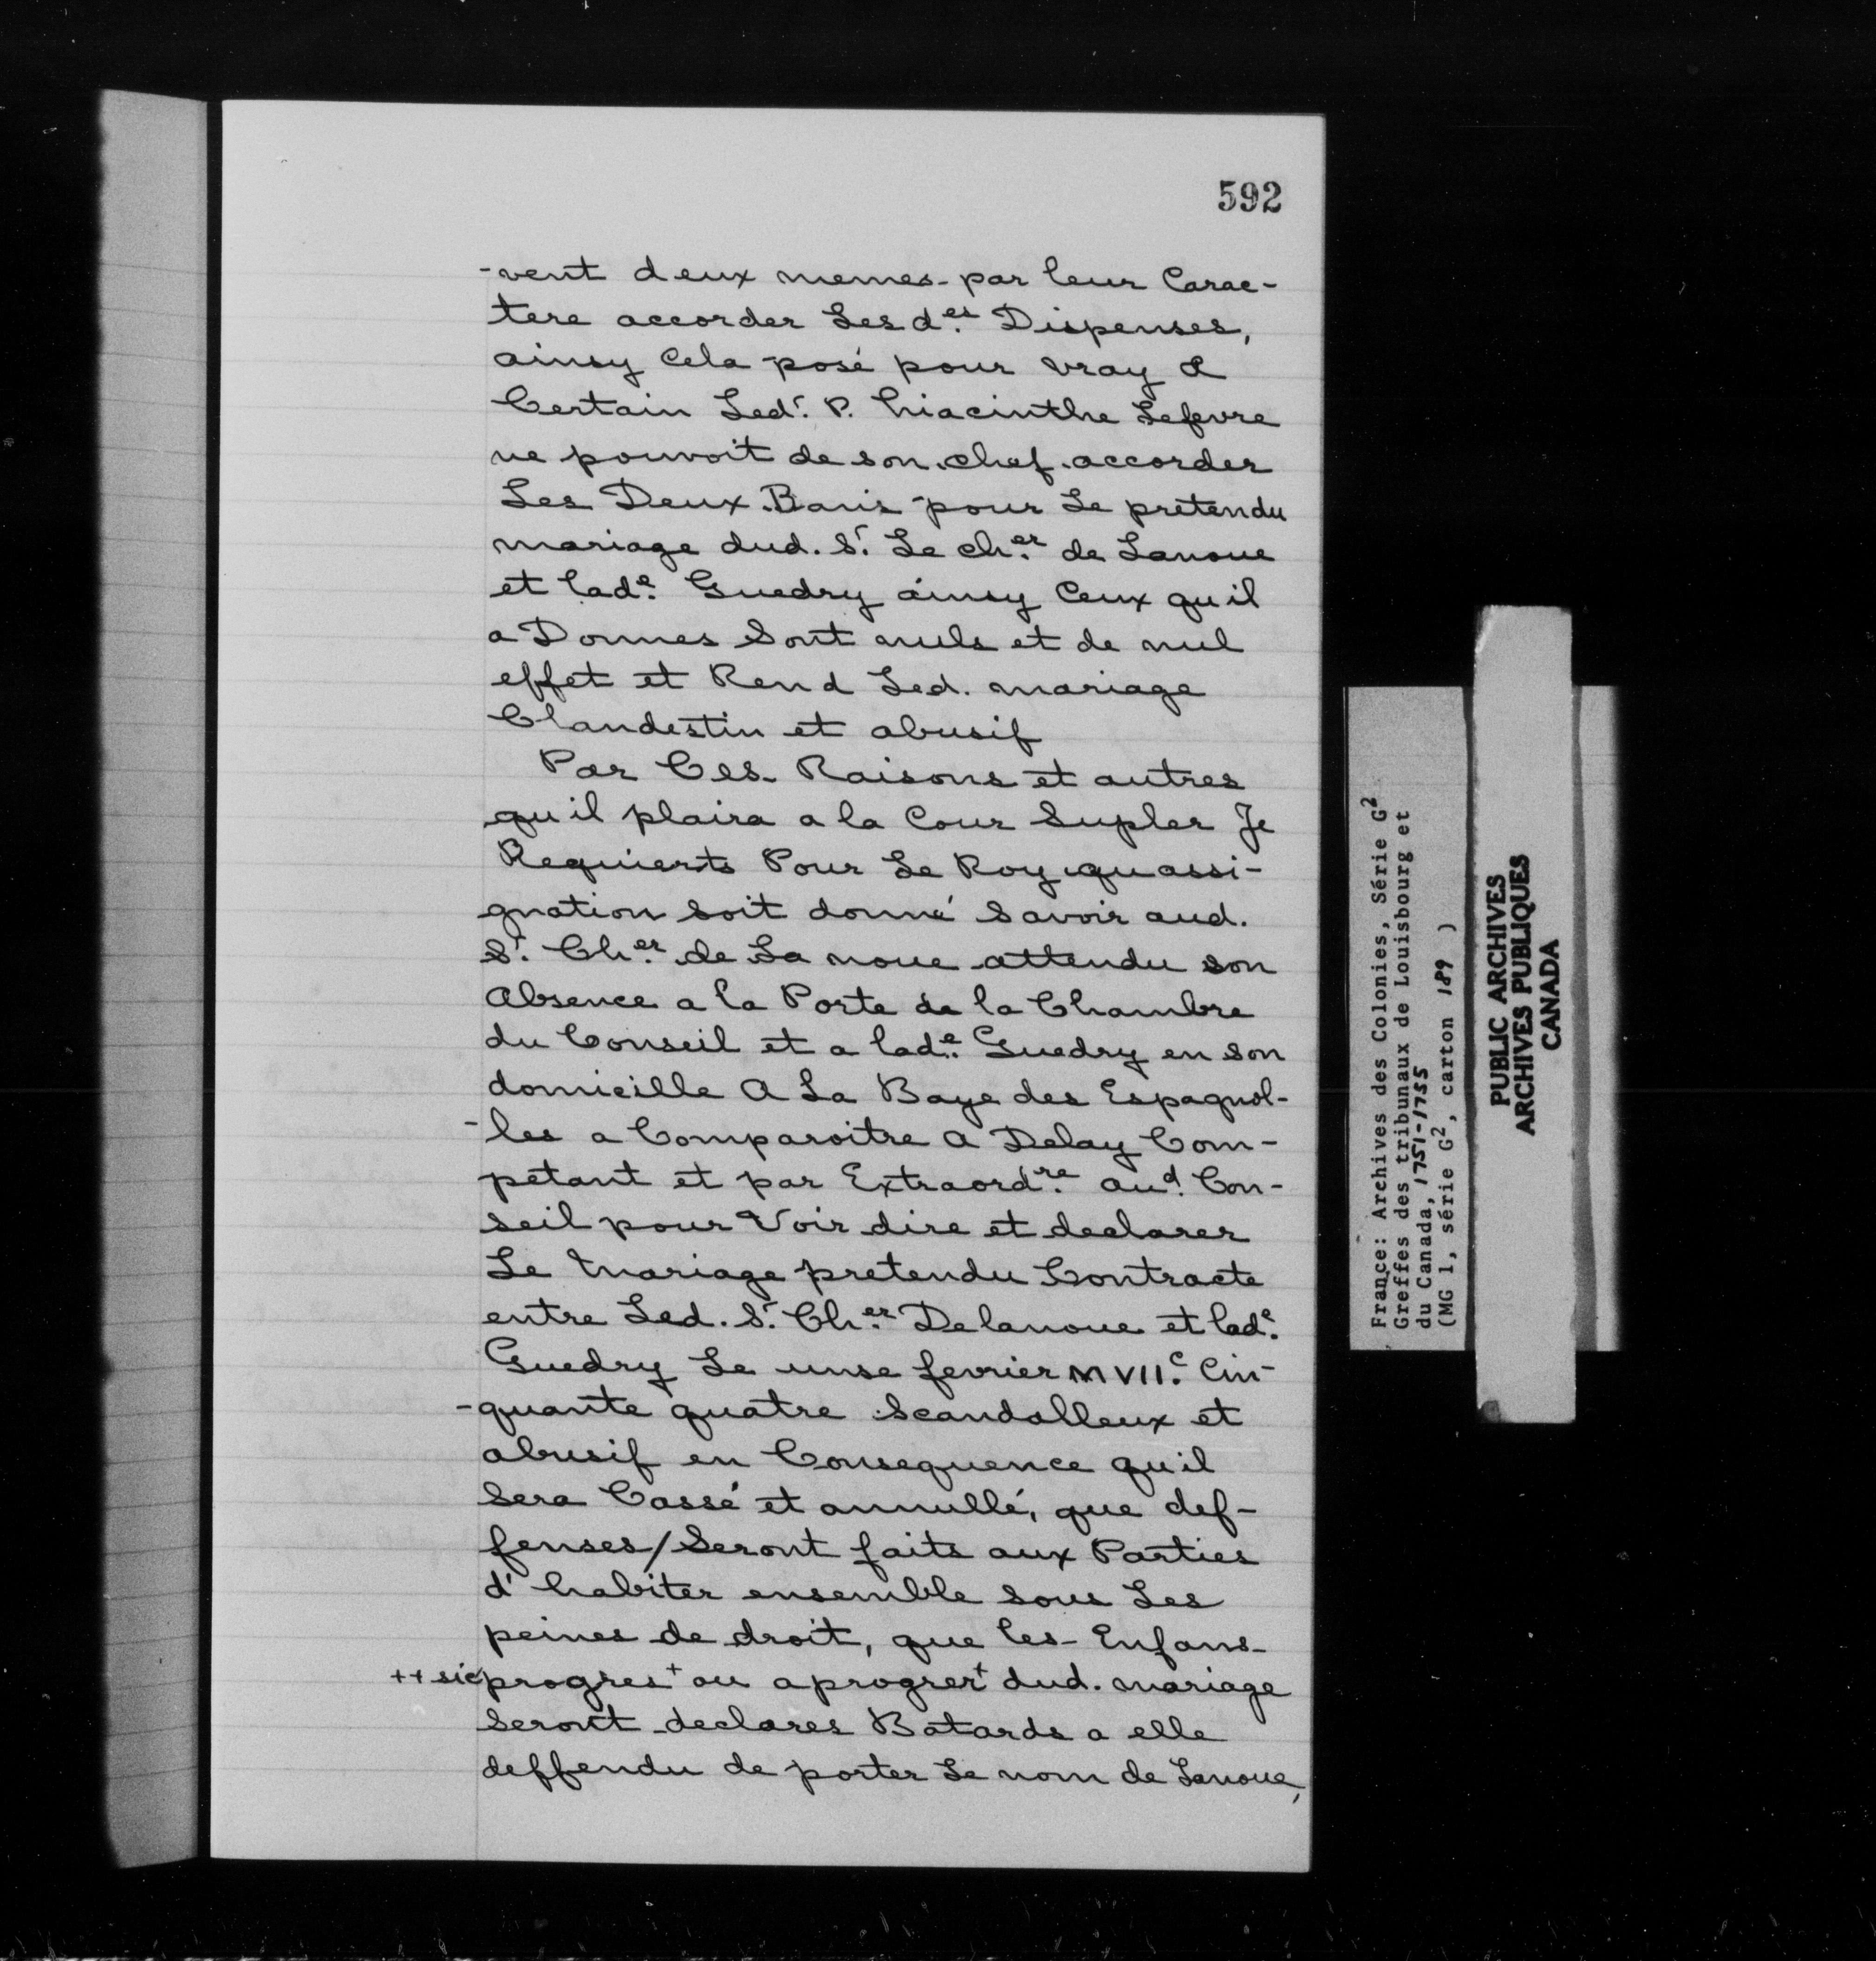 592
-vent deux memes par leur Carac-
tere accorder Les d.es Dispenses,
ainsy Cela posé pour vray &
Certain Led.t P. hiacinthe Lefevre
ne pouvoit de son chef accorder
Les Deux Bans pour Le pretendu
mariage dud. S.r Le ch.er de Lanoue
et lad.e Guedry ainsy Ceux qu il
a Donnes Sont nuls et de nul
effet et Rend Led. mariage
Clandestin et abusif
Par Ces Raisons et autres
qu il plaira a la Cour Supler Je
Requierts Pour Le Roy qu assi-
gnation soit donné Savoir aud.
S.r Ch.er de La noue attendu son
Absence a la Porte de la Chambre
du Conseil et a lad.e Guedry en son
domicille A La Baye des Espagnol-
-les a Comparoitre A Delay Com-
petant et par Extraord.re au.d Con-
seil pour Voir dire et declarer
Le Mariage pretendu Contracte
entre Led. S.r Ch.er Delanoue et lad.e
Guedry Le unse fevrier MVII.c Cin-
-quante quatre Scandalleux et
abusif en Consequence qu il
Sera Cassé et annullé, que def-
fenses/Seront faits aux Parties
d' habiter ensemble sous Les
peines de droit, que les Enfans
++ sic progres+ ou a progrer+ dud. mariage
Seront declares Batards a elle
deffendu de porter Le nom de Lanoue,
France: Archives des Colonies, Série G2
Greffes des tribunaux de Louisbourg et
du Canada, 1751-1755
(MG 1, série G2, carton 189 )
PUBLIC ARCHIVES
ARCHIVES PUBLIQUES
CANADA